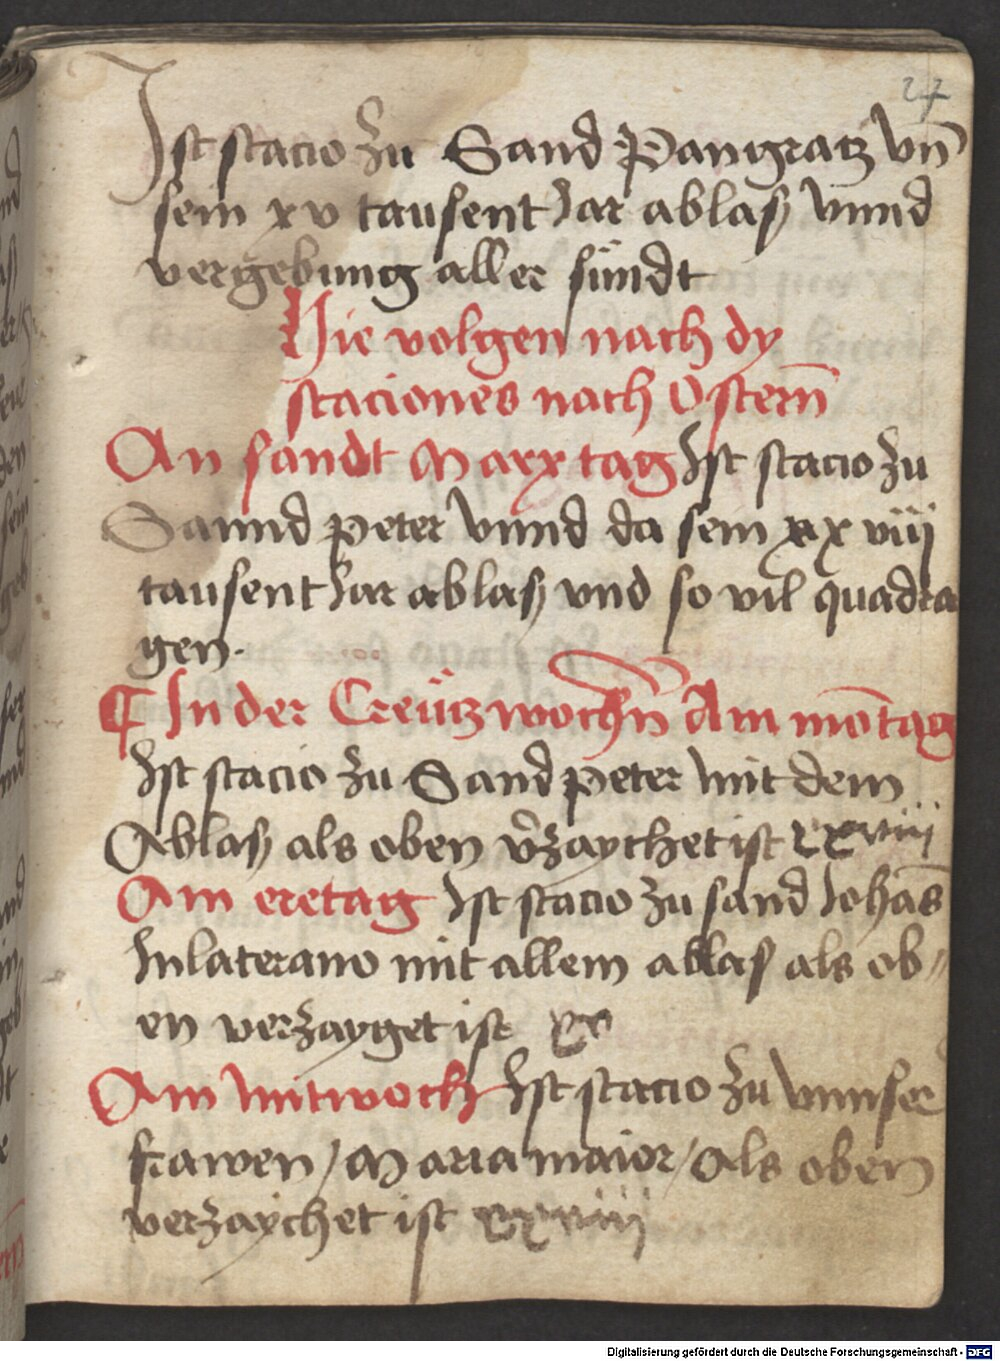 27
Ist stacio zu Sand Pangratz vn̄
sein xv tausent Jar ablas vnnd
vergebung aller sündt
Hie volgen nach dy
staciones nach Ostern̄
An sandt Marx tag Ist stacio zu
Sannd peter vnnd da sein xxviij
tausent Jar ablas vnd so vil quadra
gen.
¶ In der Creütz wochn̄ Am mōtag
Ist stacio zu Sand peter mit dem
Ablas als oben v̉zaychet ist xxviij
Am eretag Ist stacio zu sand Johās
Inlaterano mit allem ablas als ob〃
en verzayget ist xx
Am mitwoch Ist stacio zu vnnser
frawen / Maria maior / Als oben
verzaychet ist xxviij
Digitalisierung gefördert durch die Deutsche Forschungsgemeinschaft - DFG